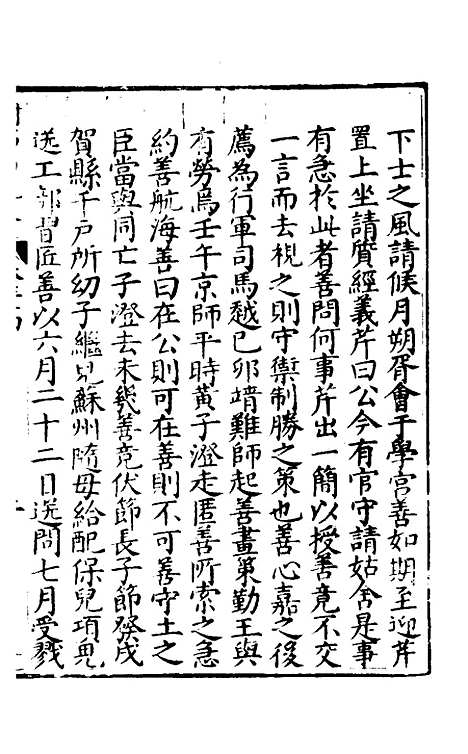 下士之風請候月朔胥會于學宮善如期至迎芹
置上坐請質經義芹曰公今有官守請姑舍是事
有急於此者善問何事芹出一簡以授善竟不交
一言而去視之則守禦制勝之策也善心嘉之後
薦為行軍司馬越已卯靖難師起善畫策勤王與
有勞焉壬午京師平時黃子澄走匿善所索之急
約善航海善曰在公則可在善則不可善守土之
臣當與同亡子澄去未幾善竟伏節長子節發戍
賀縣千戶所幼子繼兒蘇州隨母給配保兒項兒
送工部習匠善以六月二十二日送問七月受戮